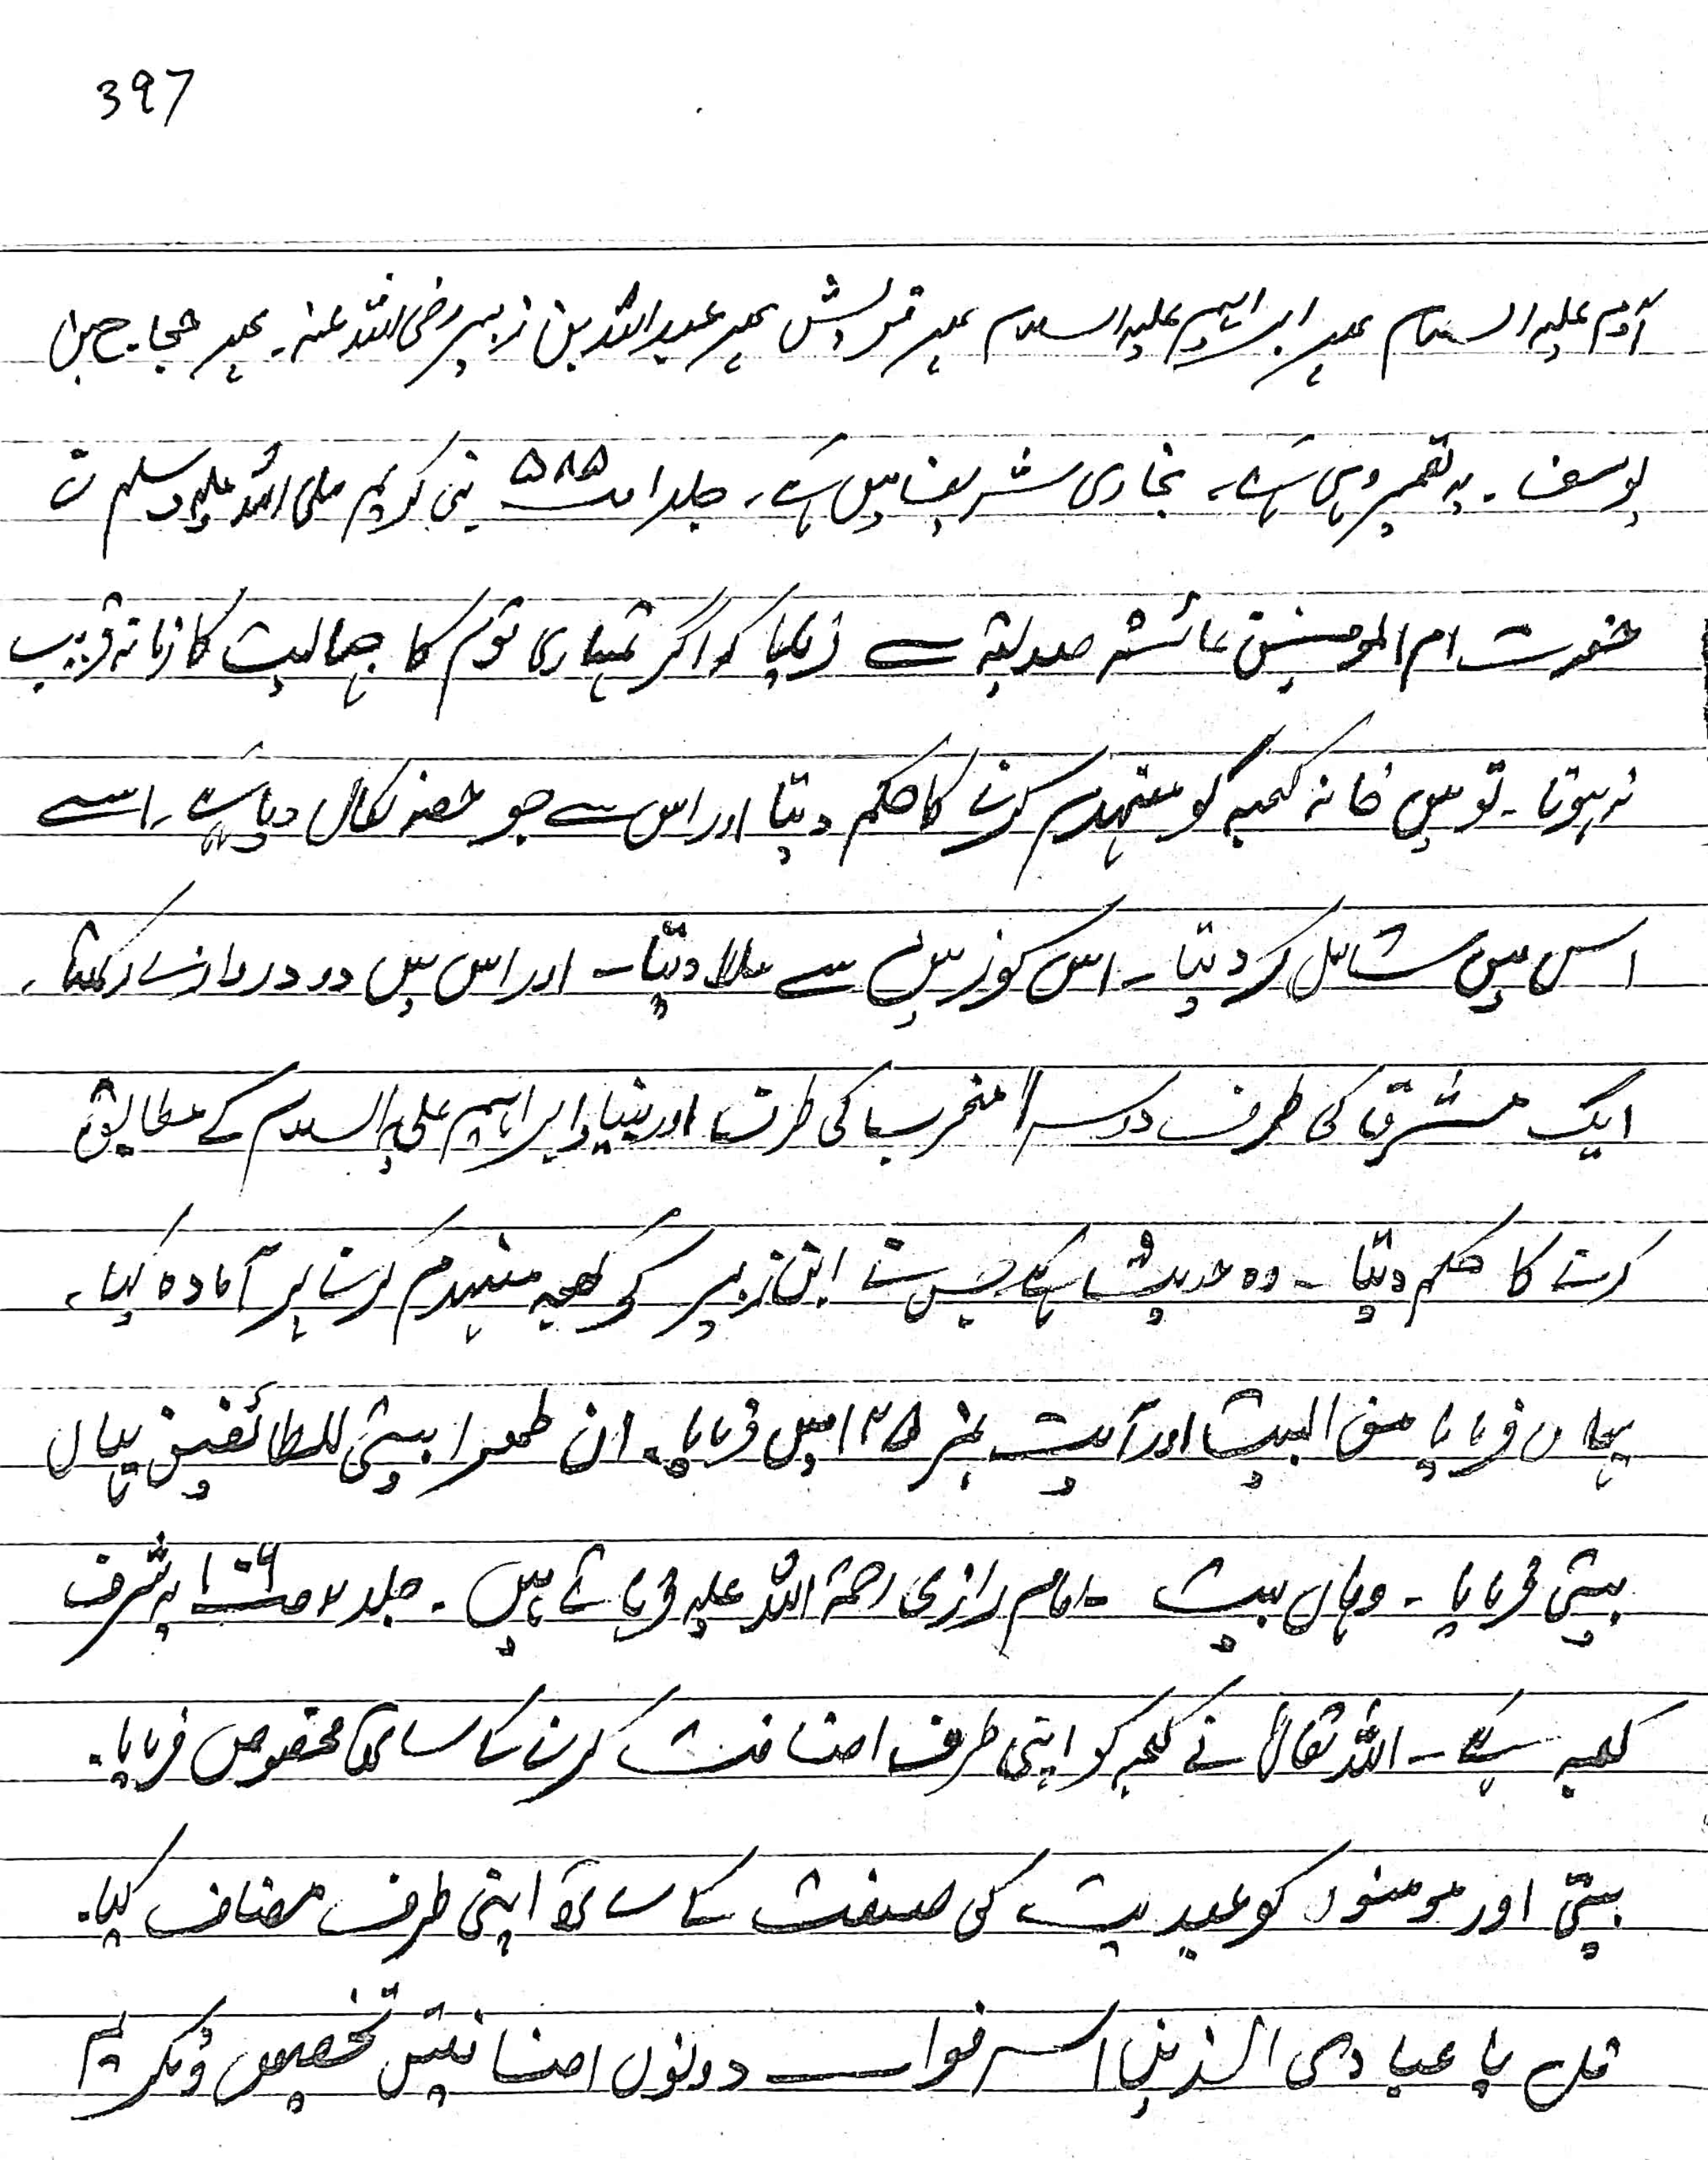 397
آدم علیہ السلام پھر ابراہیم علیہ السلام پھر قریش پھر عبداللہ بن زبیر رضی اللہ عنہ۔ پھر حجاج بن
یوسف۔ یہ تعمیر وہی ہے۔ بخاری شریف میں ہے۔ جلد ۱ ص۵۸۵ نبی کریم صلی اللہ علیہ وسلم نے
حضرت ام المومنین عائشہ صدیقہ سے فرمایا کہ اگر تمہاری قوم کا جہالیت کا زمانہ قریب
نہ ہوتا۔ تو میں خانہ کعبہ کو منہدم کرنے کا حکم دیتا اور اس سے جو حصہ نکال دیا ہے۔ اسے
اس میں شامل کر دیتا۔ اس کو زمین سے ملا دیتا۔ اور اس میں دو دروازے رکھتا۔
ایک مشرق کی طرف دوسرا مغرب کی طرف اور بنیاد ابراہیم علیہ السلام کے مطابق
کرنے کا حکم دیتا۔ وہ حدیث ہے جس نے ابن زبیر کو کعبہ منہدم کرنے پر آمادہ کیا۔
یہاں فرمایا من البیت اور آیت نمبر ۱۲۵ میں فرمایا۔ ان طھرا بیتی للطائفین یہاں
بیتی فرمایا۔ وہاں بیت ۔ امام رازی رحمۃ اللہ علیہ فرماتے ہیں۔ جلد ۲ ص۱۰۶ یہ شرف
کعبہ ہے۔ اللہ تعالیٰ نے کعبہ کو اپنی طرف اضافت کرنے کے ساتھ مخصوص فرمایا۔
بیتی اور مومنوں کو عبدیت کی صفت کے ساتھ اپنی طرف مضاف کیا۔
قل یا عبادی الذین اسرفوا۔ دونوں اضافتیں تخصیص و تکریم